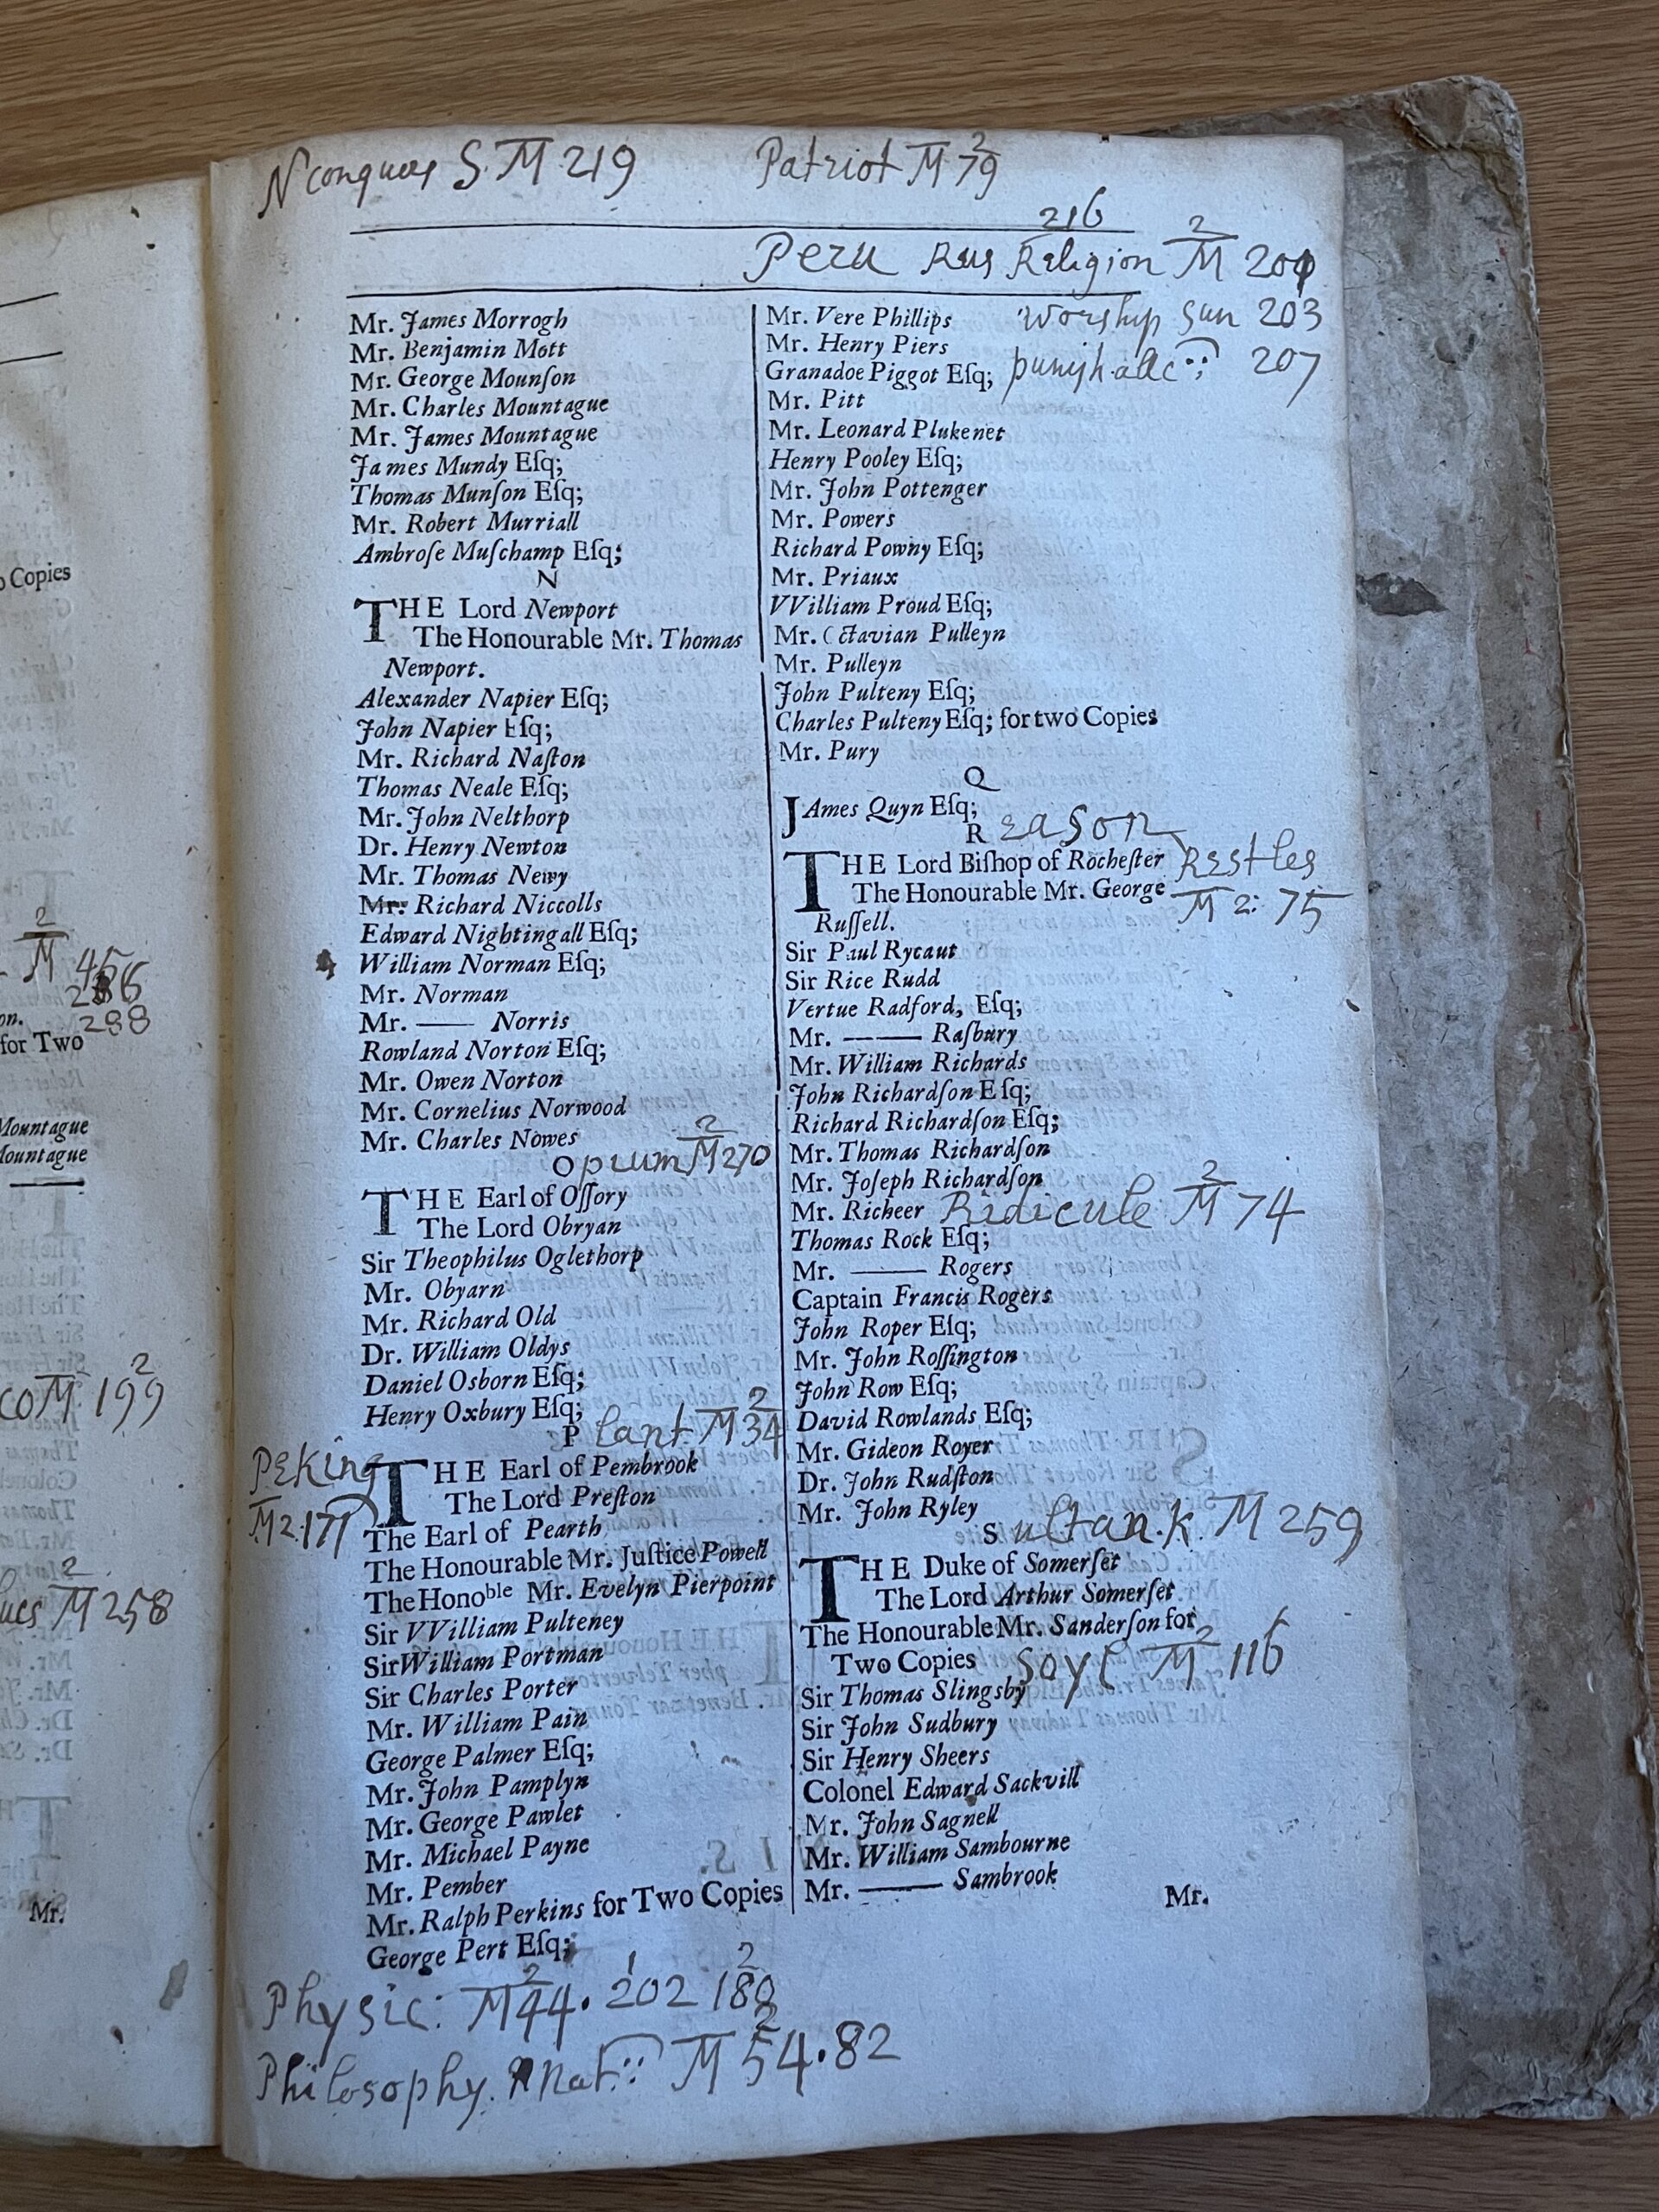 o Copies
2
M 456
286
on. 288
for Two
Mountague
Mountague
co M. 199
2
2
M 258
Mr.
S. M 219
Patriot M 2 79
216
Peru Religion M 2 201
Worship Sun 203
207
Mr. James Morrogh
Mr. Benjamin Mott
Mr. George Mounſon
Mr. Charles Mountague
Mr. James Mountague
James Mundy Eſq;
Thomas Munſon Eſq;
Mr. Robert Murriall
Ambroſe Muſchamp Eſq;
N
THE Lord Newport
The Honourable Mr. Thomas
Newport.
Alexander Napier Eſq;
John Napier Eſq;
Mr. Richard Naſton
Thomas Neale Eſq;
Mr. John Nelthorp
Dr. Henry Newton
Mr. Thomas Newy
Mr. Richard Niccolls
Edward Nightingall Eſq;
William Norman Eſq;
Mr. Norman
Mr. —— Norris
Rowland Norton Eſq;
Mr. Owen Norton
Mr. Cornelius Norwood
Mr. Charles Nowes
opium M 2 270
THE Earl of Oſſory
The Lord Obryan
Sir Theophilus Oglethorp
Mr. Obyarn
Mr. Richard Old
Dr. William Oldys
Daniel Osborn Eſq;
Henry Oxbury Eſq;
P lant M 2 34
PEKing
M 2: 177
THE Earl of Pembrook
The Lord Preſton
The Earl of Pearth
The Honourable Mr. Juſtice Powell
The Honoble Mr. Evelyn Pierpoint
Sir VVilliam Pulteney
Sir William Portman
Sir Charles Porter
Mr. William Pain
George Palmer Eſq;
Mr. John Pamplyn
Mr. George Pawlet
Mr. Michael Payne
Mr. Pember
Mr. Ralph Perkins for Two Copies
George Pert Eſq;
Mr. Vere Phillips
Mr. Henry Piers
Granadoe Piggot Eſq;
Mr. Pitt
Mr. Leonard Plukenet
Henry Pooley Eſq;
Mr. John Pottenger
Mr. Powers
Richard Powny Eſq;
Mr. Priaux
VVilliam Proud Eſq;
Mr. Octavian Pulleyn
Mr. Pulleyn
John Pulteny Eſq;
Charles Pulteny Eſq; for two Copies
Mr. Pury
Q
JAmes Quyn Eſq;
R eason
THE Lord Biſhop of Rocheſter Restles
The Honourable Mr. George M 2: 75
Ruſſell.
Sir Paul Rycaut
Sir Rice Rudd
Vertue Radford, Eſq;
Mr. —— Raſbury
Mr. William Richards
John Richardſon Eſq;
Richard Richardſon Eſq;
Mr. Thomas Richardſon
Mr. Joſeph Richardſon
Mr. Richeer Ridicule M 2 74
Thomas Rock Eſq;
Mr. —— Rogers
Captain Francis Rogers
John Roper Eſq;
Mr. John Roſſington
John Row Eſq;
David Rowlands Eſq;
Mr. Gideon Royer
Dr. John Rudſton
Mr. John Ryley
S ultan. K. M 259
THE Duke of Somerſet
The Lord Arthur Somerſet
The Honourable Mr. Sanderſon for
Two Copies M 2 116
Sir Thomas Slingsby
Sir John Sudbury
Sir Henry Sheers
Colonel Edward Sackvill
Mr. John Sagnell
Mr. William Sambourne
Mr. —— Sambrook
Mr.
Physic: M 2 44. 1 202 2 180
Philosophy. Nat:: M 2 54. 82